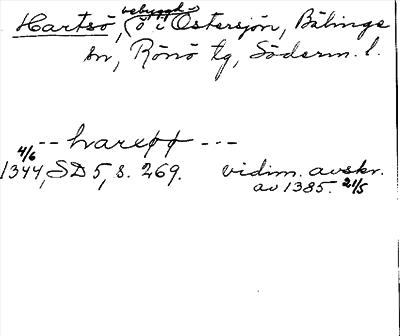 Hartsö, bebyggd ö i Östersjön, Bälinge
sn, Rönö hg, Söderm. l.
-- harexø ---
4/6
1344, SD 5, s. 269. vidim. avskr.
av 1385. 21/5